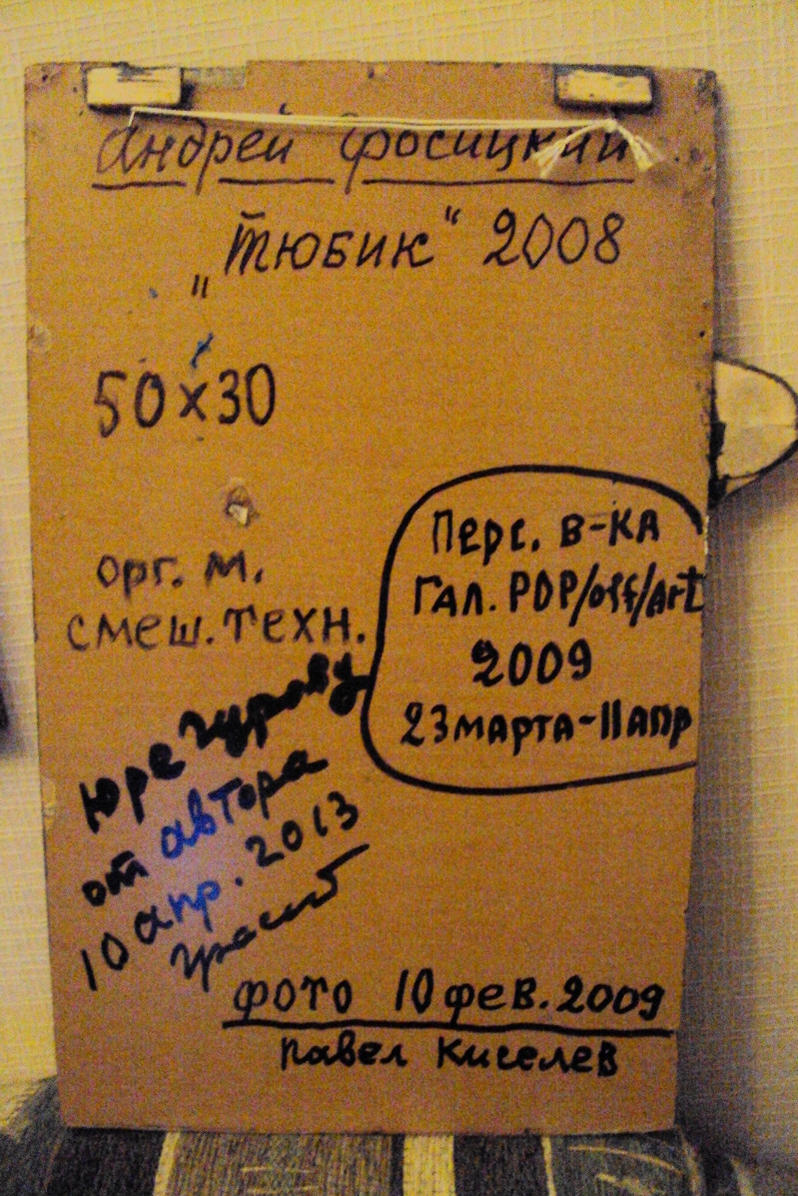 Андрей Гросицкий
„Тюбик“ 2008
50х30
орг. м.
смеш. техн.
Перс. в-ка
Гал. POP/off/Art
2009
23 марта-11 апр
Юре Гурову
от автора
10 апр. 2013
фото 10 фев. 2009
Павел Киселев